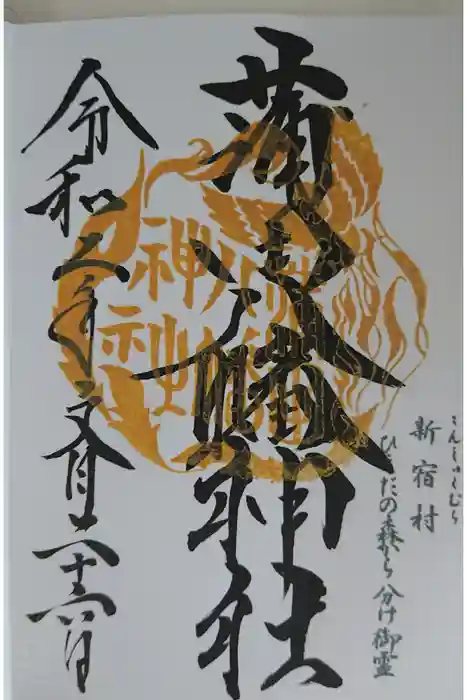 新宿村
しんしゅくむら
ひえだの森から分け御霊
蒲田八幡神社
神社
令和二年文月二十六日